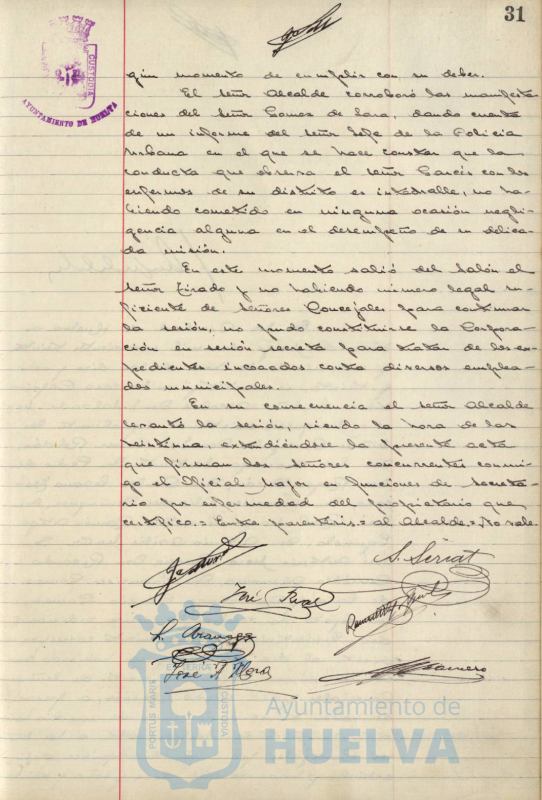 31
CUSTODIA
AYUNTAMIENTO DE HUELVA
gún momento de cumplir con su deber.
El señor Alcalde corroboró las manifesta-
ciones del señor Gomez de Lara, dando cuenta
de un informe del señor Jefe de la Policia
Urbana en el que se hace constar que la
conducta que observa el señor Garcés con los
enfermos de su distrito es intachable, no ha-
biendo cometido en ninguna ocasión negli-
gencia alguna en el desempeño de su delica-
da misión.
En este momento salió del salón el
señor Tirado y no habiendo número legal su-
ficiente de señores Concejales para continuar
la sesión, no pudo constituirse la Corpora-
ción en sesión secreta para tratar de los ex-
pedientes incoados contra diversos emplea-
dos municipales.
En su consecuencia el señor Alcalde
levantó la sesión, siendo la hora de las
veintiuna, extendiéndose la presente acta
que firman los señores concurrentes conmi-
go el Oficial Mayor en funciones de Secreta-
rio por enfermedad del propietario que
certifico.= Entre parentesis.= al Alcalde.= No vale.
S. Siriat
José
L. Aranaga
José A. Mora
PORTUS MARIS
CUSTODIA
Ayuntamiento de
HUELVA